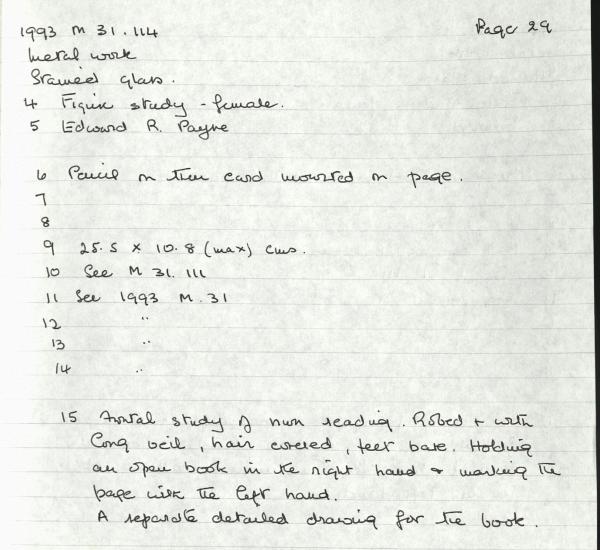 1993 M 31.114 Page 29
Metal work
Stained glass.
4 Figure study - female.
5 Edward R. Payne
6 Pencil on thin card mounted on page.
7
8
9 25.5 x 10.8 (max) cms.
10 See M 31.111
11 See 1993 M.31
12 "
13 "
14 "
15 Frontal study of nun reading. Robed + with
long veil, hair covered, feet bare. Holding
an open book in the right hand & marking the
page with the left hand.
A separate detailed drawing for the book.